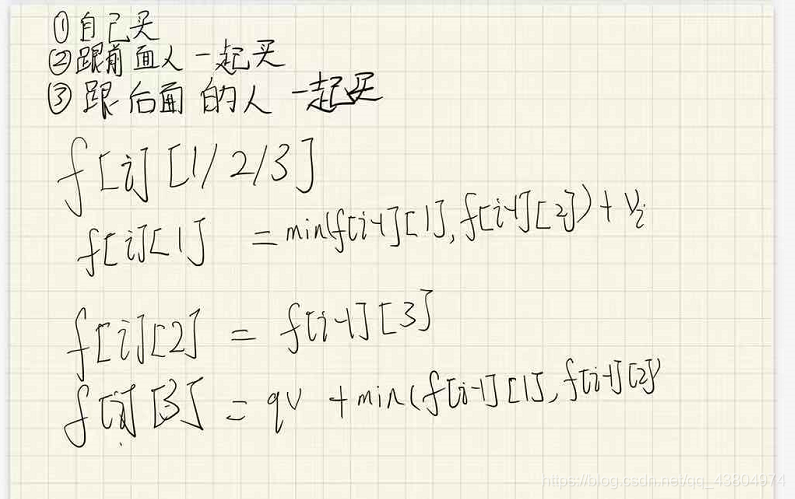 ①自己买
②跟前面人一起买
③跟后面的人一起买
f[i][1/2/3]
f[i][1] = min(f[i-1][1], f[i-1][2]) + Vi
f[i][2] = f[i-1][3]
f[i][3] = qv + min(f[i-1][1], f[i-1][2])
https://blog.csdn.net/qq_43804974